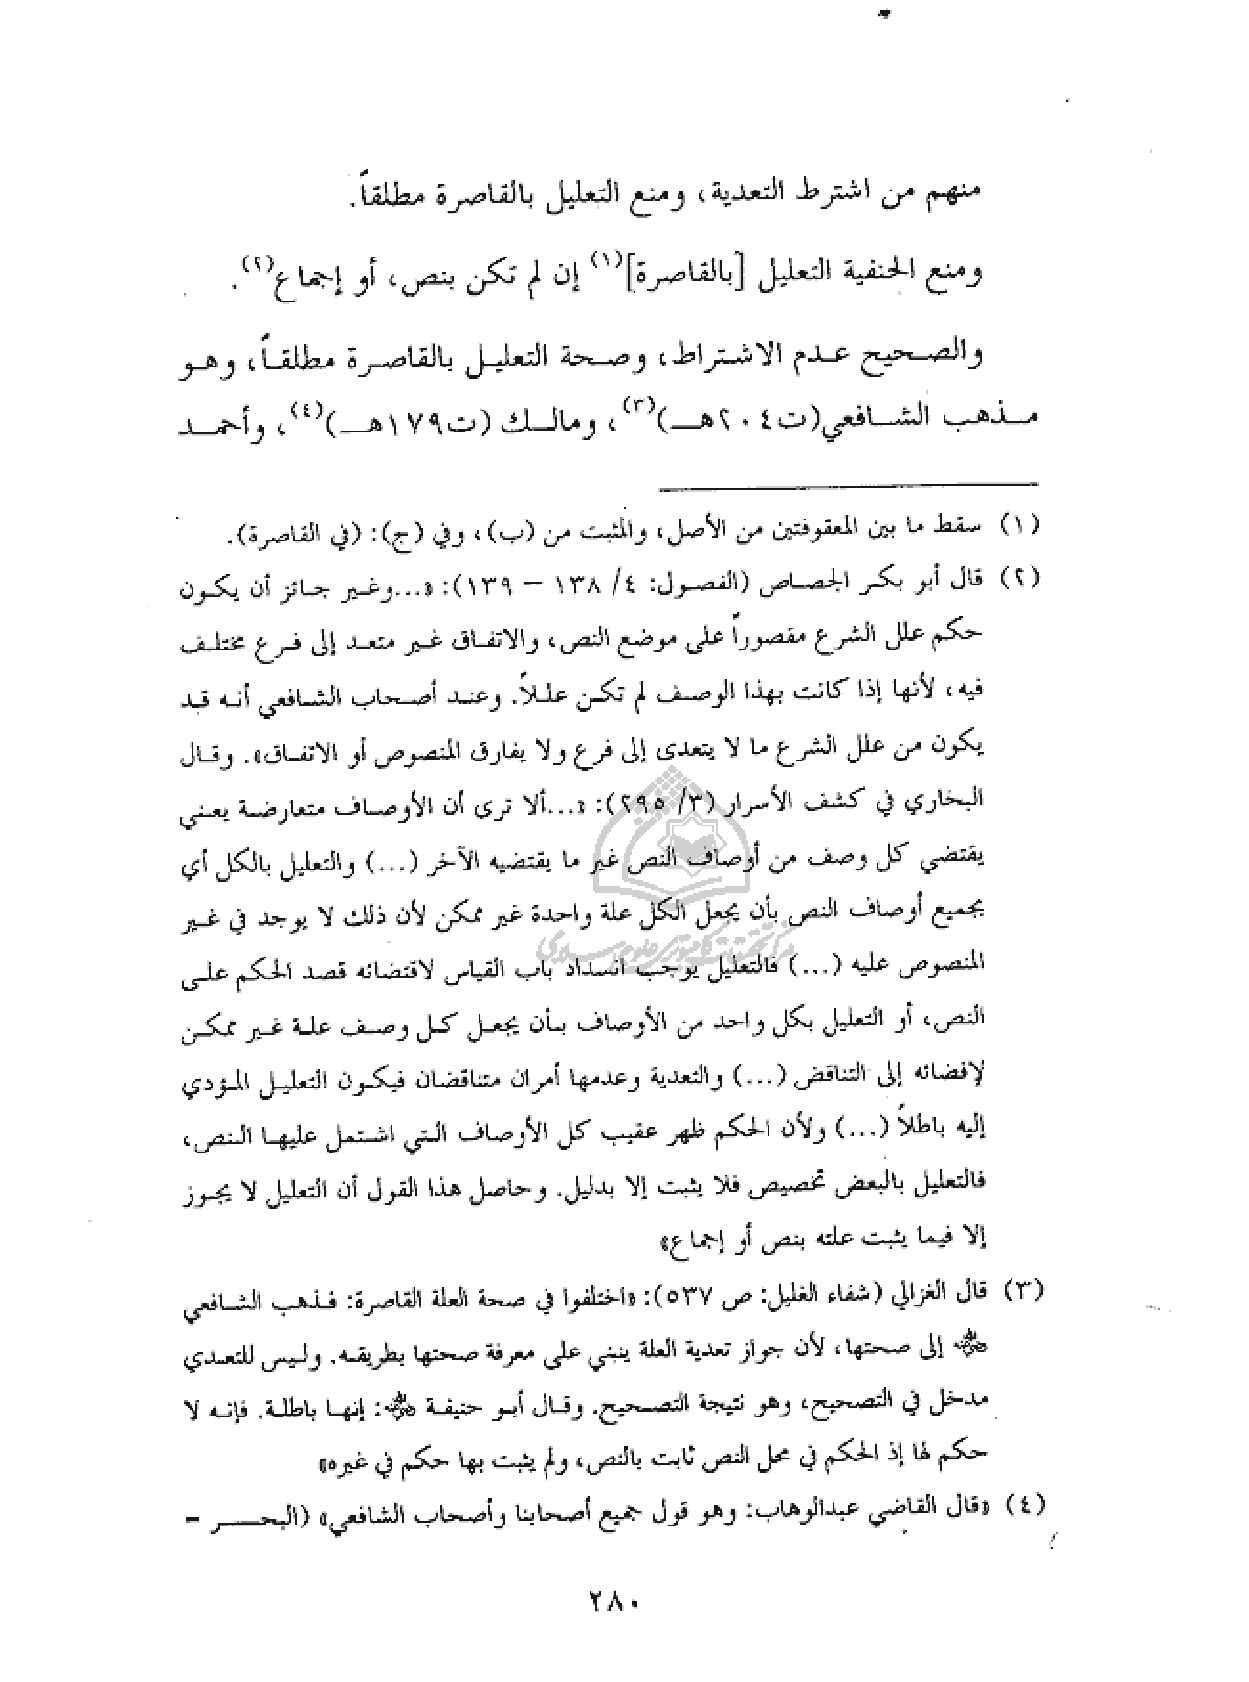 منهم من اشترط التعدية، ومنع التعليل بالقاصرة مطلقاً.
ومنع الحنفية التعليل [بالقاصرة](١) إن لم تكن بنص، أو إجماع(٢).
والصحيح عـدم الاشـتراط، وصـحة التعليـل بالقاصـرة مطلقـاً، وهـو
مـذهب الشـافعي(ت٢٠٤هـ)(٣)، ومالـك (ت١٧٩هـ)(٤)، وأحمـد
(١) سقط ما بين المعقوفتين من الأصل، والمثبت من (ب)، وفي (ج): (في القاصرة).
(٢) قال أبو بكـر الجصـاص (الفصـول: ٤/ ١٣٨ – ١٣٩): «...وغـير جـائز أن يكـون
حكم علل الشرع مقصوراً على موضع النص، والاتفـاق غـير متعـد إلى فـرع مختلـف
فيه، لأنها إذا كانت بهذا الوصـف لم تكـن علـلاً. وعنـد أصـحاب الشـافعي أنـه قـد
يكون من علل الشرع ما لا يتعدى إلى فرع ولا يفارق المنصوص أو الاتفـاق». وقـال
البخاري في كشف الأسرار (٣/ ٢٩٥): «...ألا ترى أن الأوصـاف متعارضـة يعـني
يقتضي كل وصف من أوصاف النص غير ما يقتضيه الآخر (...) والتعليل بالكل أي
بجميع أوصاف النص بأن يجعل الكل علة واحدة غير ممكن لأن ذلك لا يوجد في غـير
المنصوص عليه (...) فالتعليل يوجب انسداد باب القياس لاقتضائه قصد الحكم علـى
النص، أو التعليل بكل واحد من الأوصاف بـأن يجعـل كـل وصـف علـة غـير ممكـن
لإفضائه إلى التناقض (...) والتعدية وعدمها أمران متناقضان فيكـون التعليـل المـؤدي
إليه باطلاً (...) ولأن الحكم ظهر عقيب كل الأوصاف الـتي اشـتمل عليهـا الـنص،
فالتعليل بالبعض تخصيص فلا يثبت إلا بدليل. وحاصل هذا القول أن التعليل لا يجـوز
إلا فيما يثبت علته بنص أو إجماع»
(٣) قال الغزالي (شفاء الغليل: ص ٥٣٧): «اختلفوا في صحة العلة القاصرة: فـذهب الشـافعي
ﷺ إلى صحتها، لأن جواز تعدية العلة ينبني على معرفة صحتها بطريقـه. ولـيس للتعـدي
مدخل في التصحيح، وهو نتيجة التصـحيح. وقـال أبـو حنيفـة ﷺ: إنهـا باطلـة. فإنـه لا
حكم لها إذ الحكم في محل النص ثابت بالنص، ولم يثبت بها حكم في غيره»
(٤) «قال القاضي عبدالوهاب: وهو قول جميع أصحابنا وأصحاب الشافعي» (البحـــر =
٢٨٠